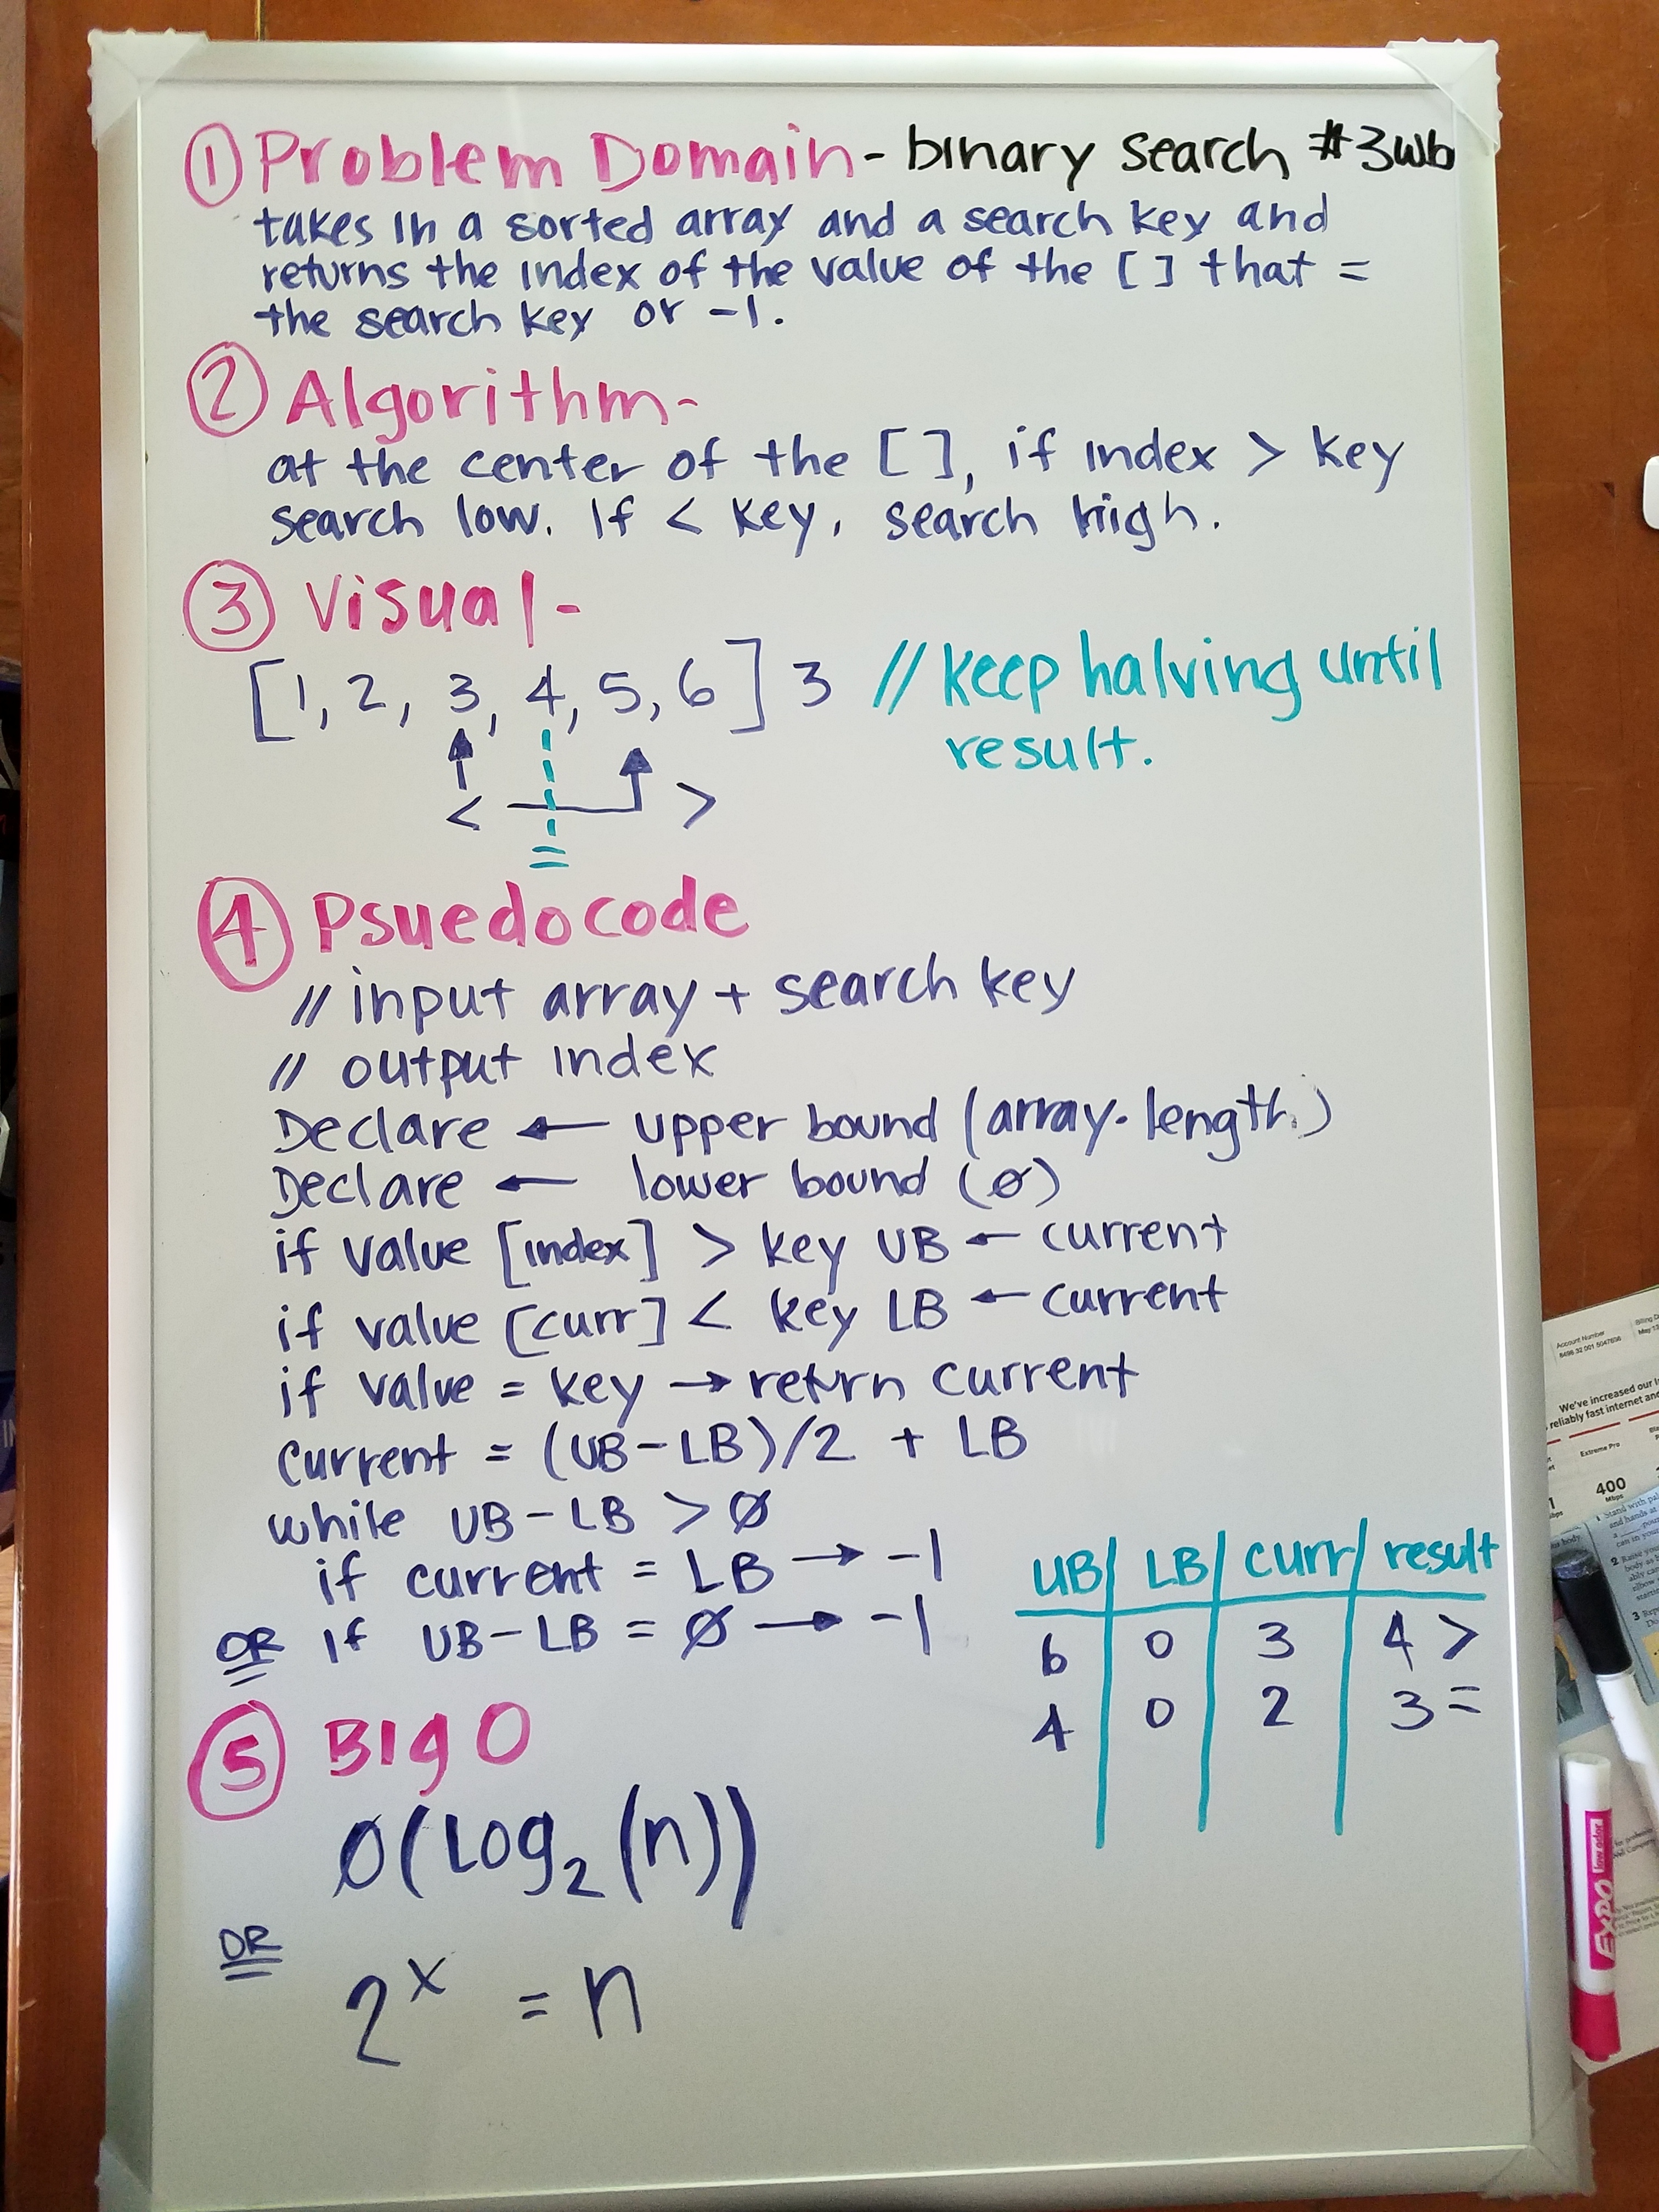 ① Problem Domain - binary search #3wb
takes in a sorted array and a search key and
returns the index of the value of the [ ] that =
the search key or -1.
② Algorithm-
at the center of the [ ], if index > key
search low. If < key, search high.
③ Visual-
[1, 2, 3, 4, 5, 6] 3 // keep halving until
result.
< >
=
④ Psuedocode
// input array + search key
// output index
Declare ← upper bound (array.length)
Declare ← lower bound (0)
if value [index] > key UB ← current
if value [curr] < key LB ← current
if value = key → return current
current = (UB-LB)/2 + LB
while UB-LB > 0
if current = LB → -1
OR if UB-LB = 0 → -1
UB LB curr result
6 0 3 4 >
4 0 2 3 =
⑤ Big O
O(Log₂(n))
OR
2ˣ = n
Account Number
8498 32 001 5047606
Billing D
May 13
We've increased our I
reliably fast internet and
Extreme Pro
400
Mbps
EXPO low odor